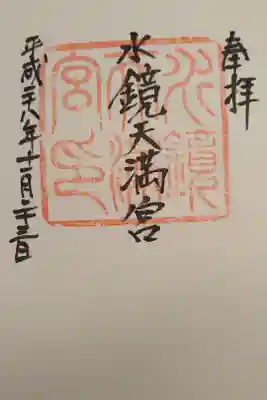 奉拝
水鏡天満宮
平成二十八年十一月二十三日
水鏡天満宮印